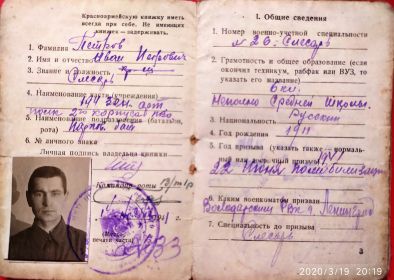 Красноармейскую книжку иметь
всегда при себе. Не имеющих
книжек — задерживать.
1. Фамилия Петров
2. Имя и отчество Иван Петрович
3. Звание и должность кр-ец
Слесарь
4. Наименование части (учреждения)
194 зен. арт.
полк 2го корпуса пво
5. Наименование подразделения (батальон,
рота)
6. № личного знака
Личная подпись владельца книжки
Командир роты
I. Общие сведения
1. Номер военно-учетной специальности
№ 26. Слесарь
2. Грамотность и общее образование (если
окончил техникум, рабфак или ВУЗ, то
указать его название) 6 кл.
Неполно Средней Школы.
3. Национальность Русский
4. Год рождения 1911
5. Год призыва (указать также — нормаль-
ный или досрочный призыв) 1941
22 Июня по мобилизации
6. Каким военкоматом призван
Володарским Рвк г. Ленинград
7. Специальность до призыва
Слесарь
3
2020/3/19 20:19